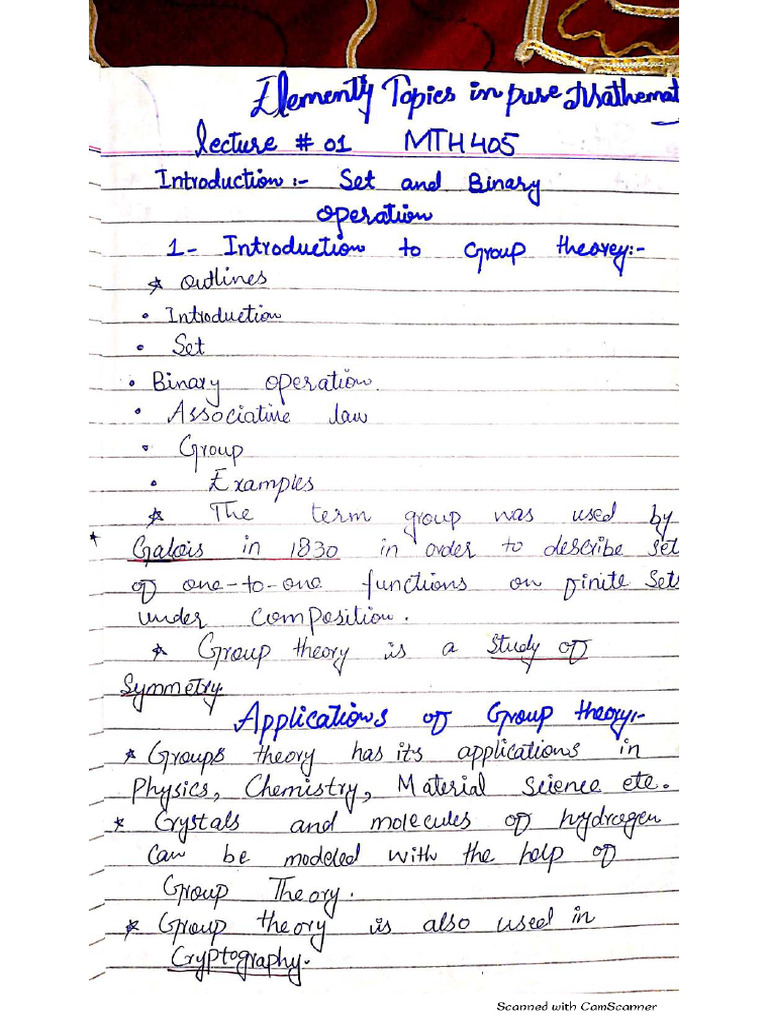 Elementy Topics in pure Mathemat
lecture # 01 MTH405
Introduction:- Set and Binary
operation
1- Introduction to Group theorey:-
* outlines
• Introduction
• Set
• Binary operation.
• Associative law
• Group
• Examples
* The term group was used by
* Galois in 1830 in order to describe set
of one-to-one functions on finite Sets
under Composition.
* Group theory is a Study of
Symmetry.
Applications of Group theory:-
* Groups theory has its applications in
Physics, Chemistry, Material Science etc.
* Crystals and molecules of hydrogen
Can be modeled with the help of
Group Theory.
* Group theory is also used in
Cryptography.
Scanned with CamScanner